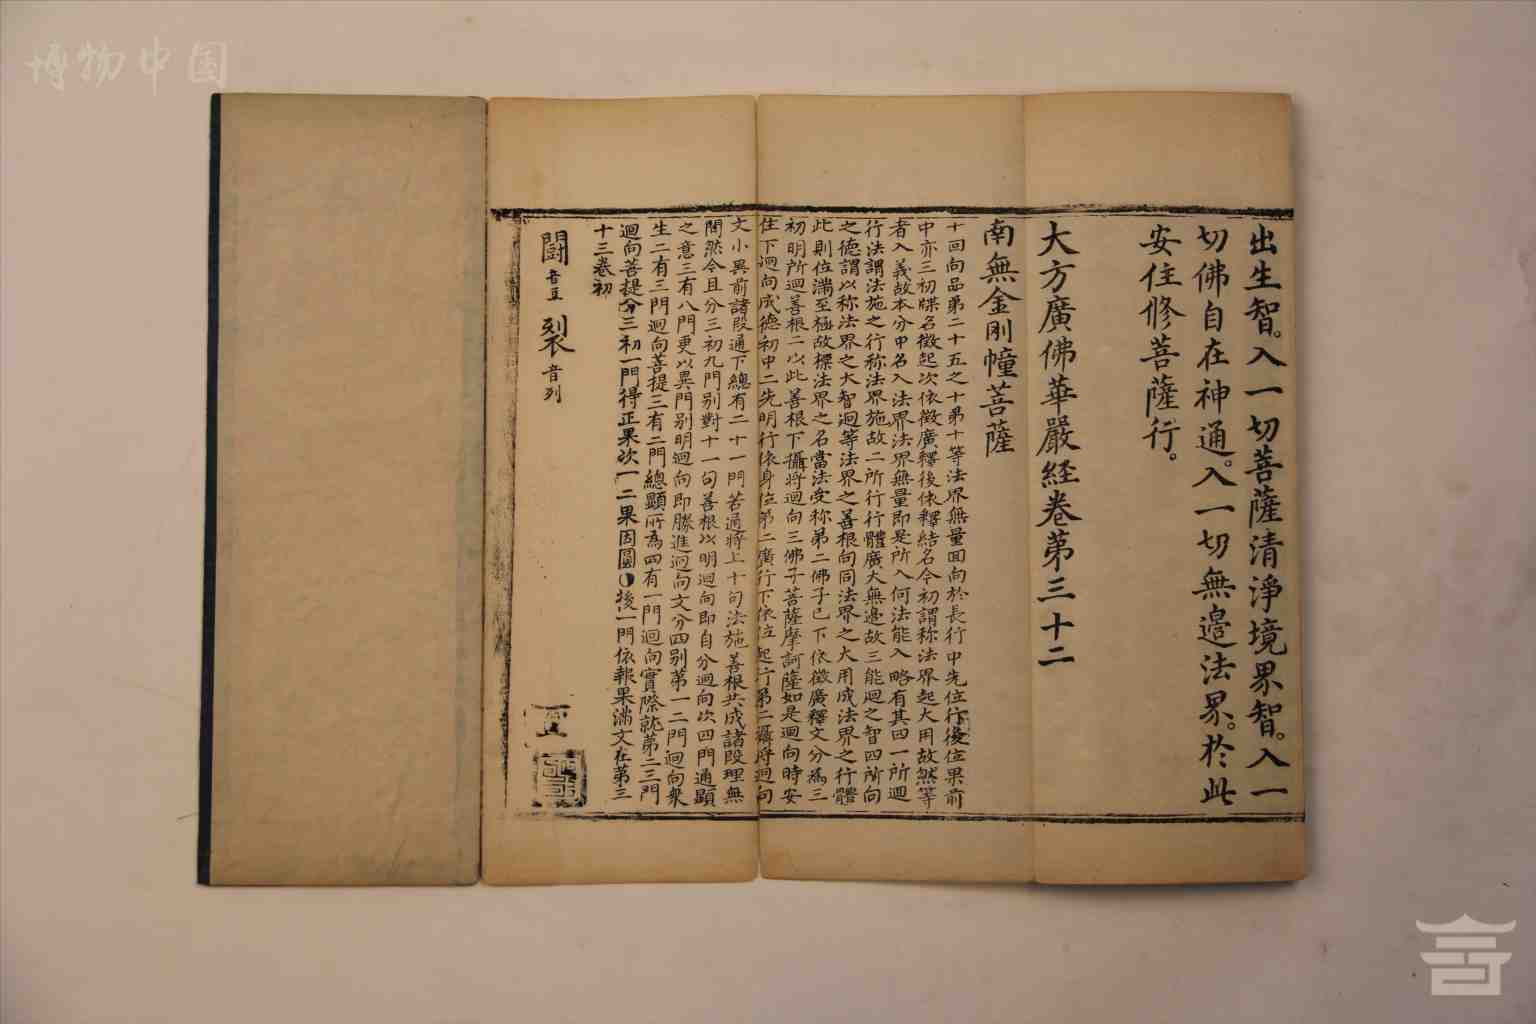 博物中国
出生智。入一切菩薩清淨境界智。入一
切佛自在神通。入一切無邊法界。於此
安住修菩薩行。
大方廣佛華嚴經卷第三十二
南無金剛幢菩薩
十回向品第二十五之十第十等法界無量回向於長行中先位行後位果前
中亦三初牒名徵起次依徵廣釋後依釋結名今初謂称法界起大用故然等
者入義故本分中名入法界法界無量即是所入何法能入略有其四一所迴
行法謂法施之行称法界施故二所行行體廣大無邊故三能迴之智四所向
之德謂以称法界之大智迴等法界之善根向同法界之大用成法界之行體
此則位滿至極故標法界之名當法受称第二佛子已下依徵廣釋文分為三
初明所迴善根二以此善根下攝將迴向三佛子菩薩摩訶薩如是迴向時安
住下迴向成德初中二先明行依身位第二廣行下依位起行第二攝將迴向
文小異前諸段通下總有二十一門若通將上十句法施善根共成諸段理無
閒然今且分三初九門别對十一句善根以明迴向即自分迴向次四門通顯
之意三有八門更以異門别明迴向即勝進迴向文分四别第一二門迴向衆
生二有三門迴向菩提三有二門總顯所為四有一門迴向實際就第二三門
迴向菩提分三初一門得正果次一二果因圓後一門依報果滿文在第三
十三卷初
闘 音豆 裂 音列